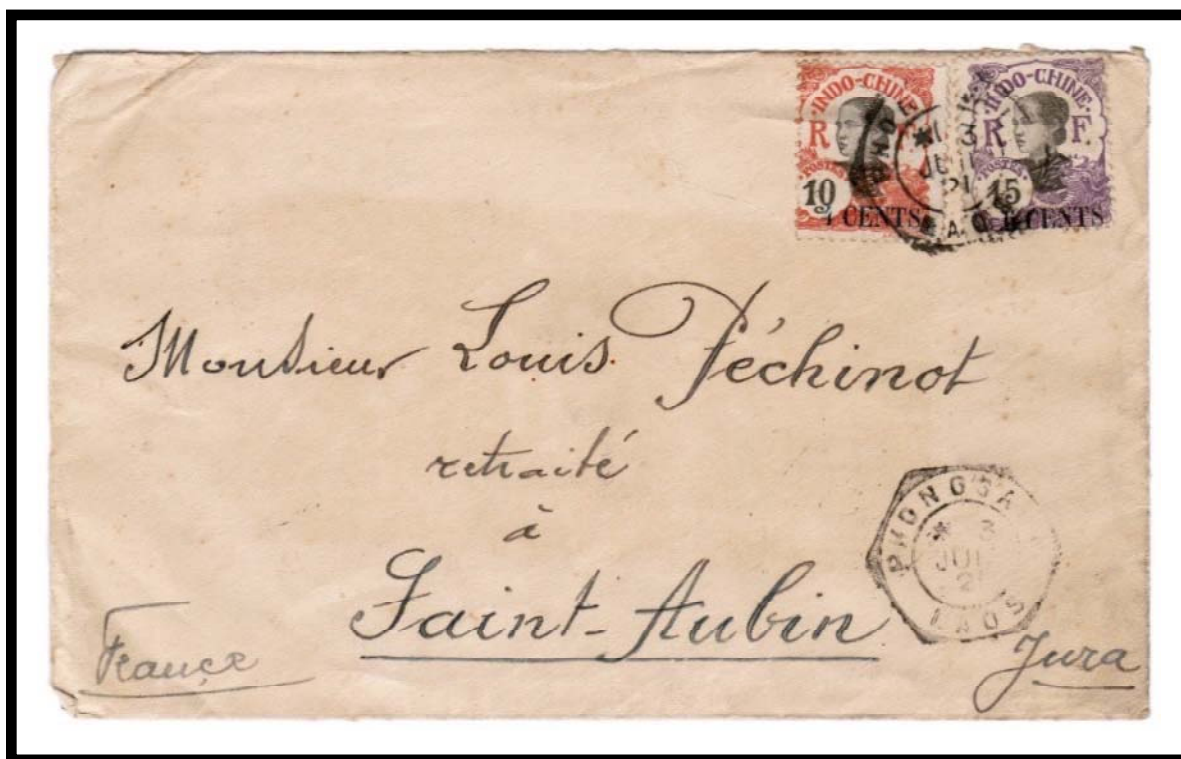 INDO-CHINE
R
POSTES
10
4 CENTS
INDO-CHINE
R F
POSTES
15
6 CENTS
* 3
21
Monsieur Louis Péchinot
retraité
à
Saint-Aubin
France
Jura
PHONGSA
* 3
JUI
21
LAOS